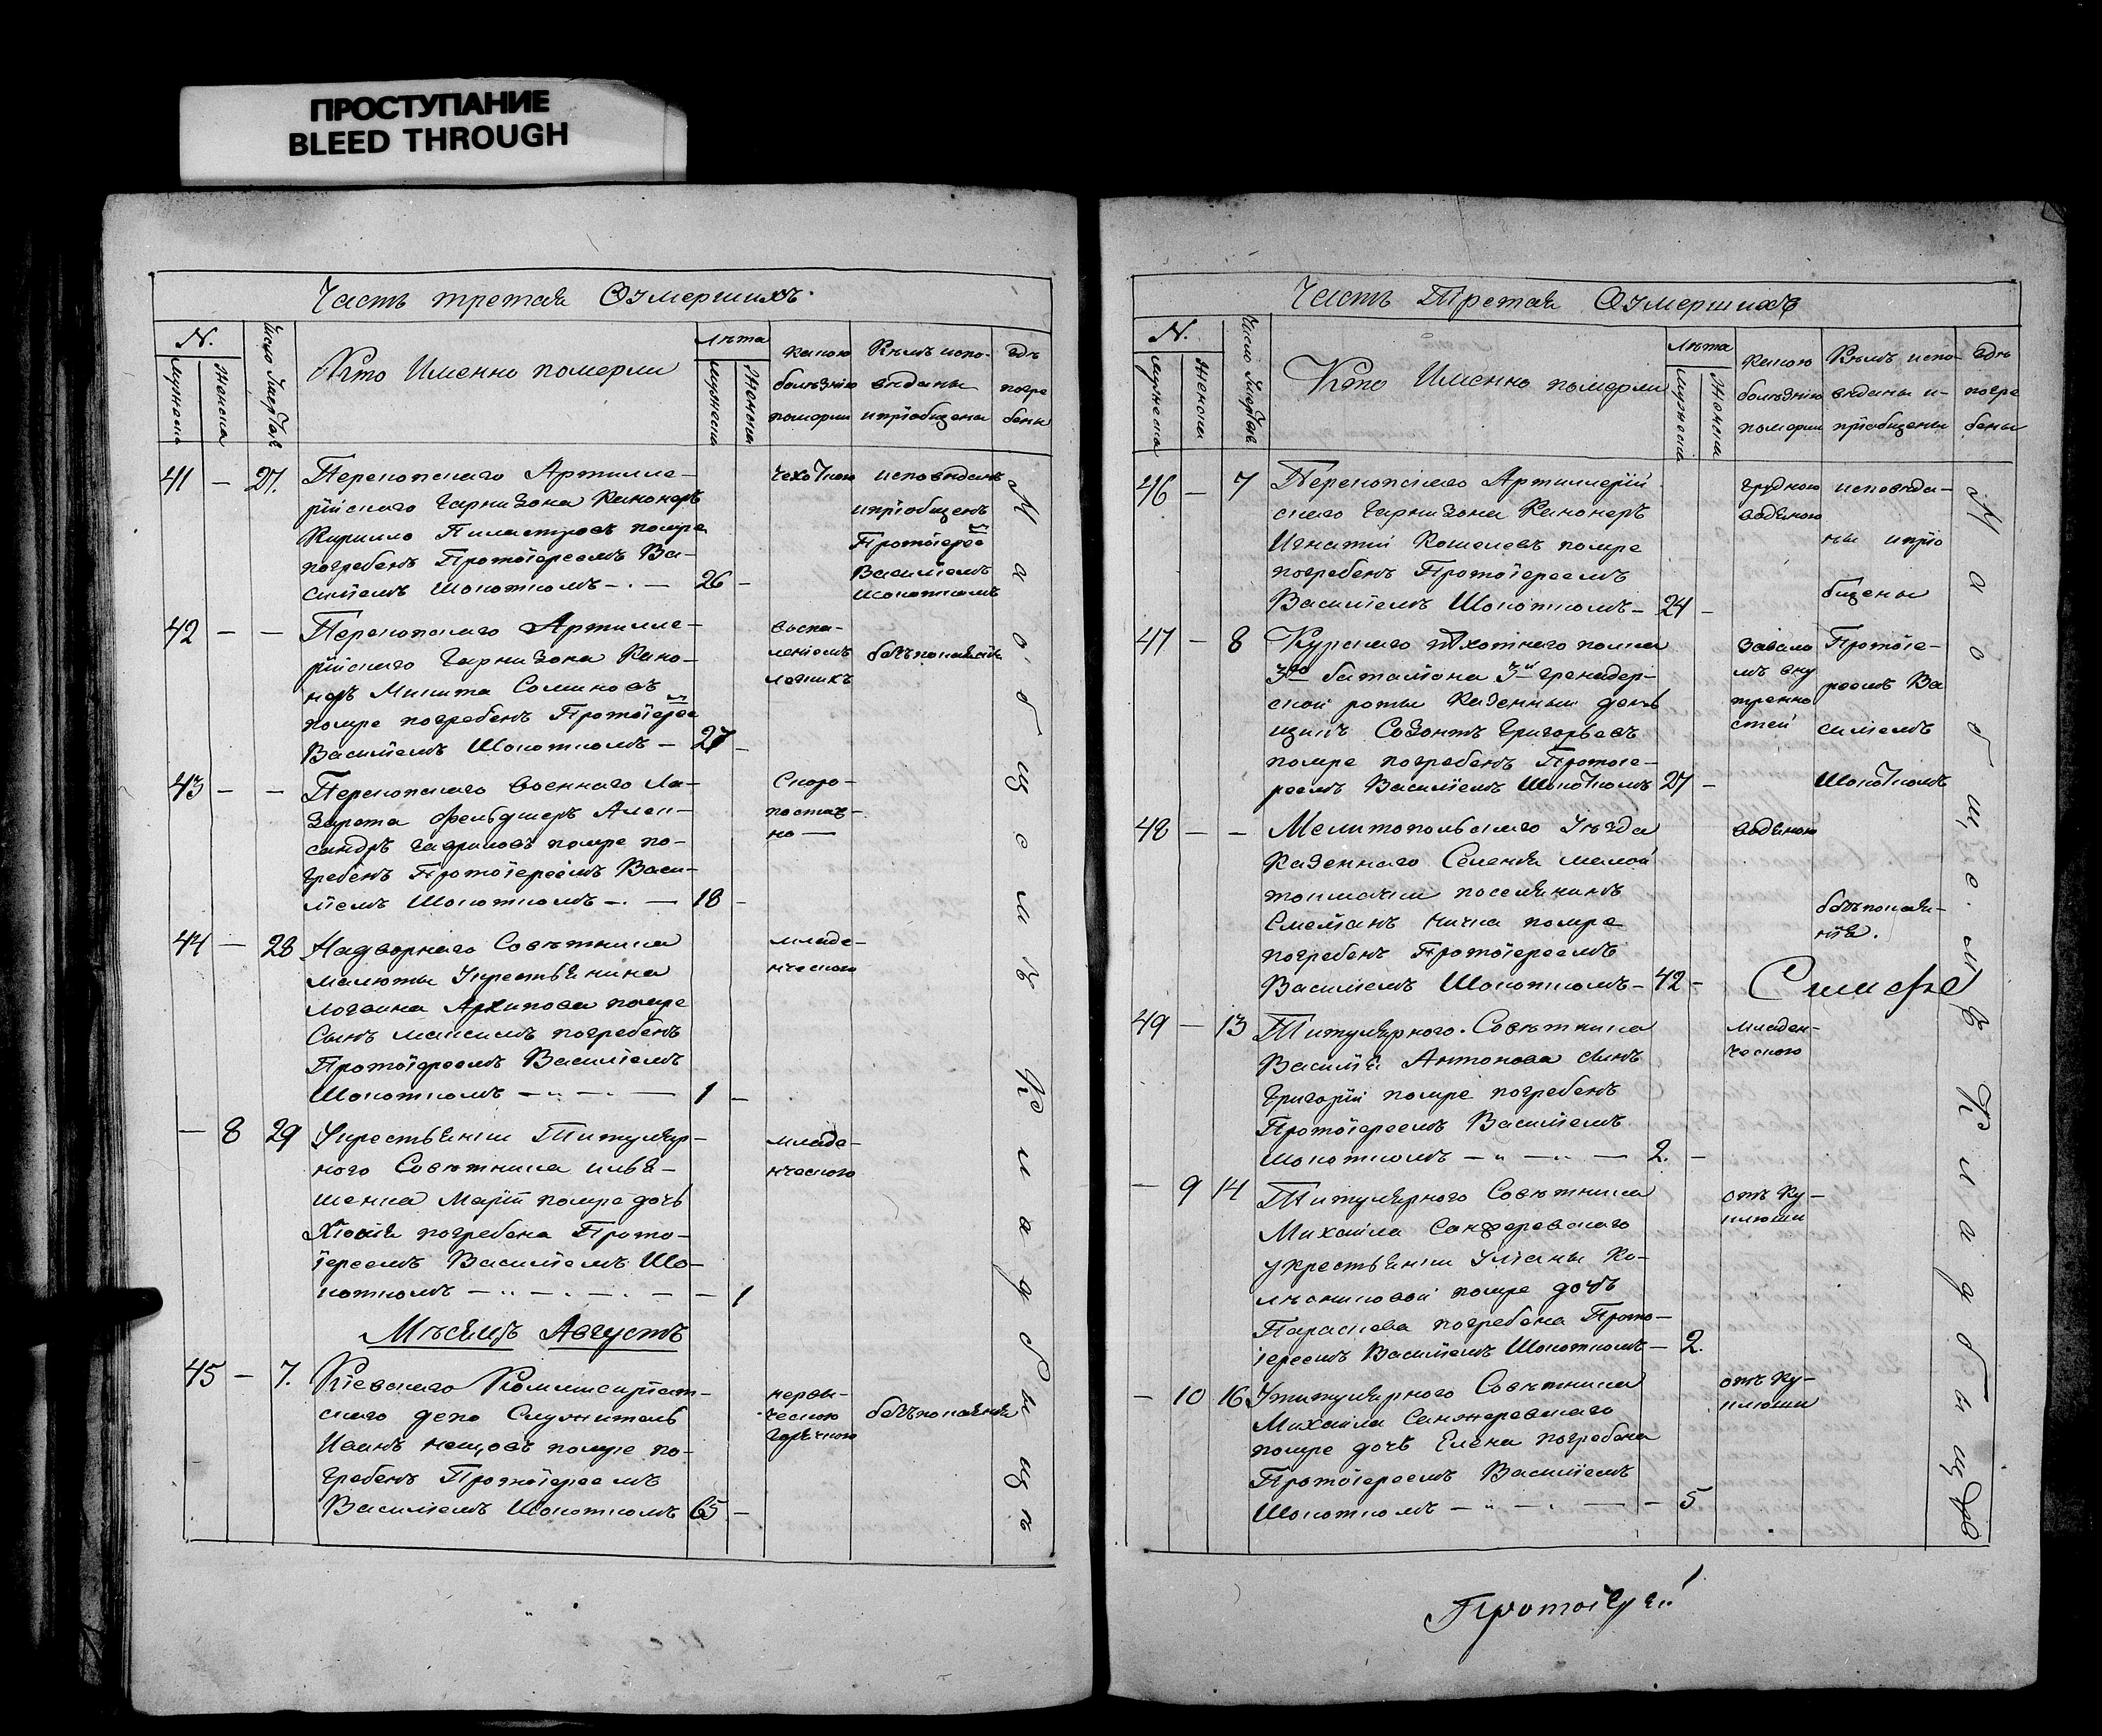 ПРОСТУПАНИЕ
BLEED THROUGH
Часть третая Оумершихъ.
N.
мужеска
Женска
Число Смертей
Кто Именно померли
Лѣта
мужеска
Женска
Какою
болѣзнію
померли
Кѣмъ испо-
вѣданы
ипріобщены
гдѣ
погре
бены
41 — 27. Перекопскаго Артилле-
рійскаго Гарнизона Канонеръ
Кирилло помре
погребенъ Протоіереемъ Ва-
силіемъ Шокоткомъ — 26 —
чехоткою
исповѣданъ
ипріобщенъ
Протоіерее
мъ
Василіемъ
Шокоткомъ
42 — — Перекопскаго Артилле-
рійскаго Гарнизона Кано-
неръ Микита
помре погребенъ Протоіерее
мъ
Василіемъ Шокоткомъ — 27 —
воспа-
леніемъ
легкихъ
безъпокаянія
43 — — Перекопскаго военнаго Ла-
зарета Фельдшеръ Алек-
сандръ Гавриловъ помре по-
гребенъ Протоіереемъ Васи-
ліемъ Шокоткомъ — 18 —
Скоро-
постиж-
но —
44 — 28 Надворнаго Совѣтника
малюты Укрестьянина
логвина Архипова помре
Сынъ максимъ погребенъ
Протоіереемъ Василіемъ
Шокоткомъ — 1 —
младе-
нческою
— 8 29 Укрестьянки Титуляр-
ного Совѣтника илья-
шенка Маріи помре дочь
погребена Прото-
іереемъ Василіемъ Шо-
коткомъ — 1
младе-
нческою
Мѣсяцъ Августъ
45 — 7. Кіевскаго Коммисаріат-
скаго депо Служитель
Иванъ помре по-
гребенъ Протоіереемъ
Василіемъ Шокоткомъ 65 —
нерви-
ческою
горячкою
безъпокаянія
На общемъ Кладбищѣ
Часть Третая Оумершихъ
N.
мужеска
Женска
Число Смертей
Кто Именно померли
Лѣта
мужеска
Женска
Какою
болѣзнію
померли
Кѣмъ испо-
вѣданы и-
пріобщены
гдѣ
погре
бены
46 — 7 Перекопскаго Артиллерій
скаго Гарнизона Канонеръ
Игнатій Кошелевъ помре
погребенъ Протоіереемъ
Василіемъ Шокоткомъ — 24 —
грудною
водяною
исповѣда-
ны ипріо
бщены
47 — 8 Курскаго пѣхотнаго полка
3го баталіона 3й гренадер-
ской роты Казенный день
щикъ Созонтъ Григорьевъ
помре погребенъ Протоіе-
реемъ Василіемъ Шокоткомъ 27 —
завало
мъ вну
тренно
стей
Протоіе-
реемъ Ва
силіемъ
Шокоткомъ
48 — — Мелитопольскаго Уѣзда
Казеннаго Селенія малой
токмачки поселянинъ
Емеліанъ помре
погребенъ Протоіереемъ
Василіемъ Шокоткомъ — 42 —
водяною
безъпокая-
нія.
49 — 13 Титулярного Совѣтника
Василія Антонова Сынъ
Григорій помре погребенъ
Протоіереемъ Василіемъ
Шокоткомъ — 2. —
младен-
ческою
— 9 14 Титулярного Совѣтника
Михаила
укрестьянки Уліаны Ко-
помре дочь
Параскева погребена Прото-
іереемъ Василіемъ Шокоткомъ — 2.
отъ Ку-
клюши
— 10 16 Утитулярного Совѣтника
Михаила
помре дочь Елена погребена
Протоіереемъ Василіемъ
Шокоткомъ — 5
отъ Ку-
клюши
На общемъ Кладбищѣ
Протоіерей